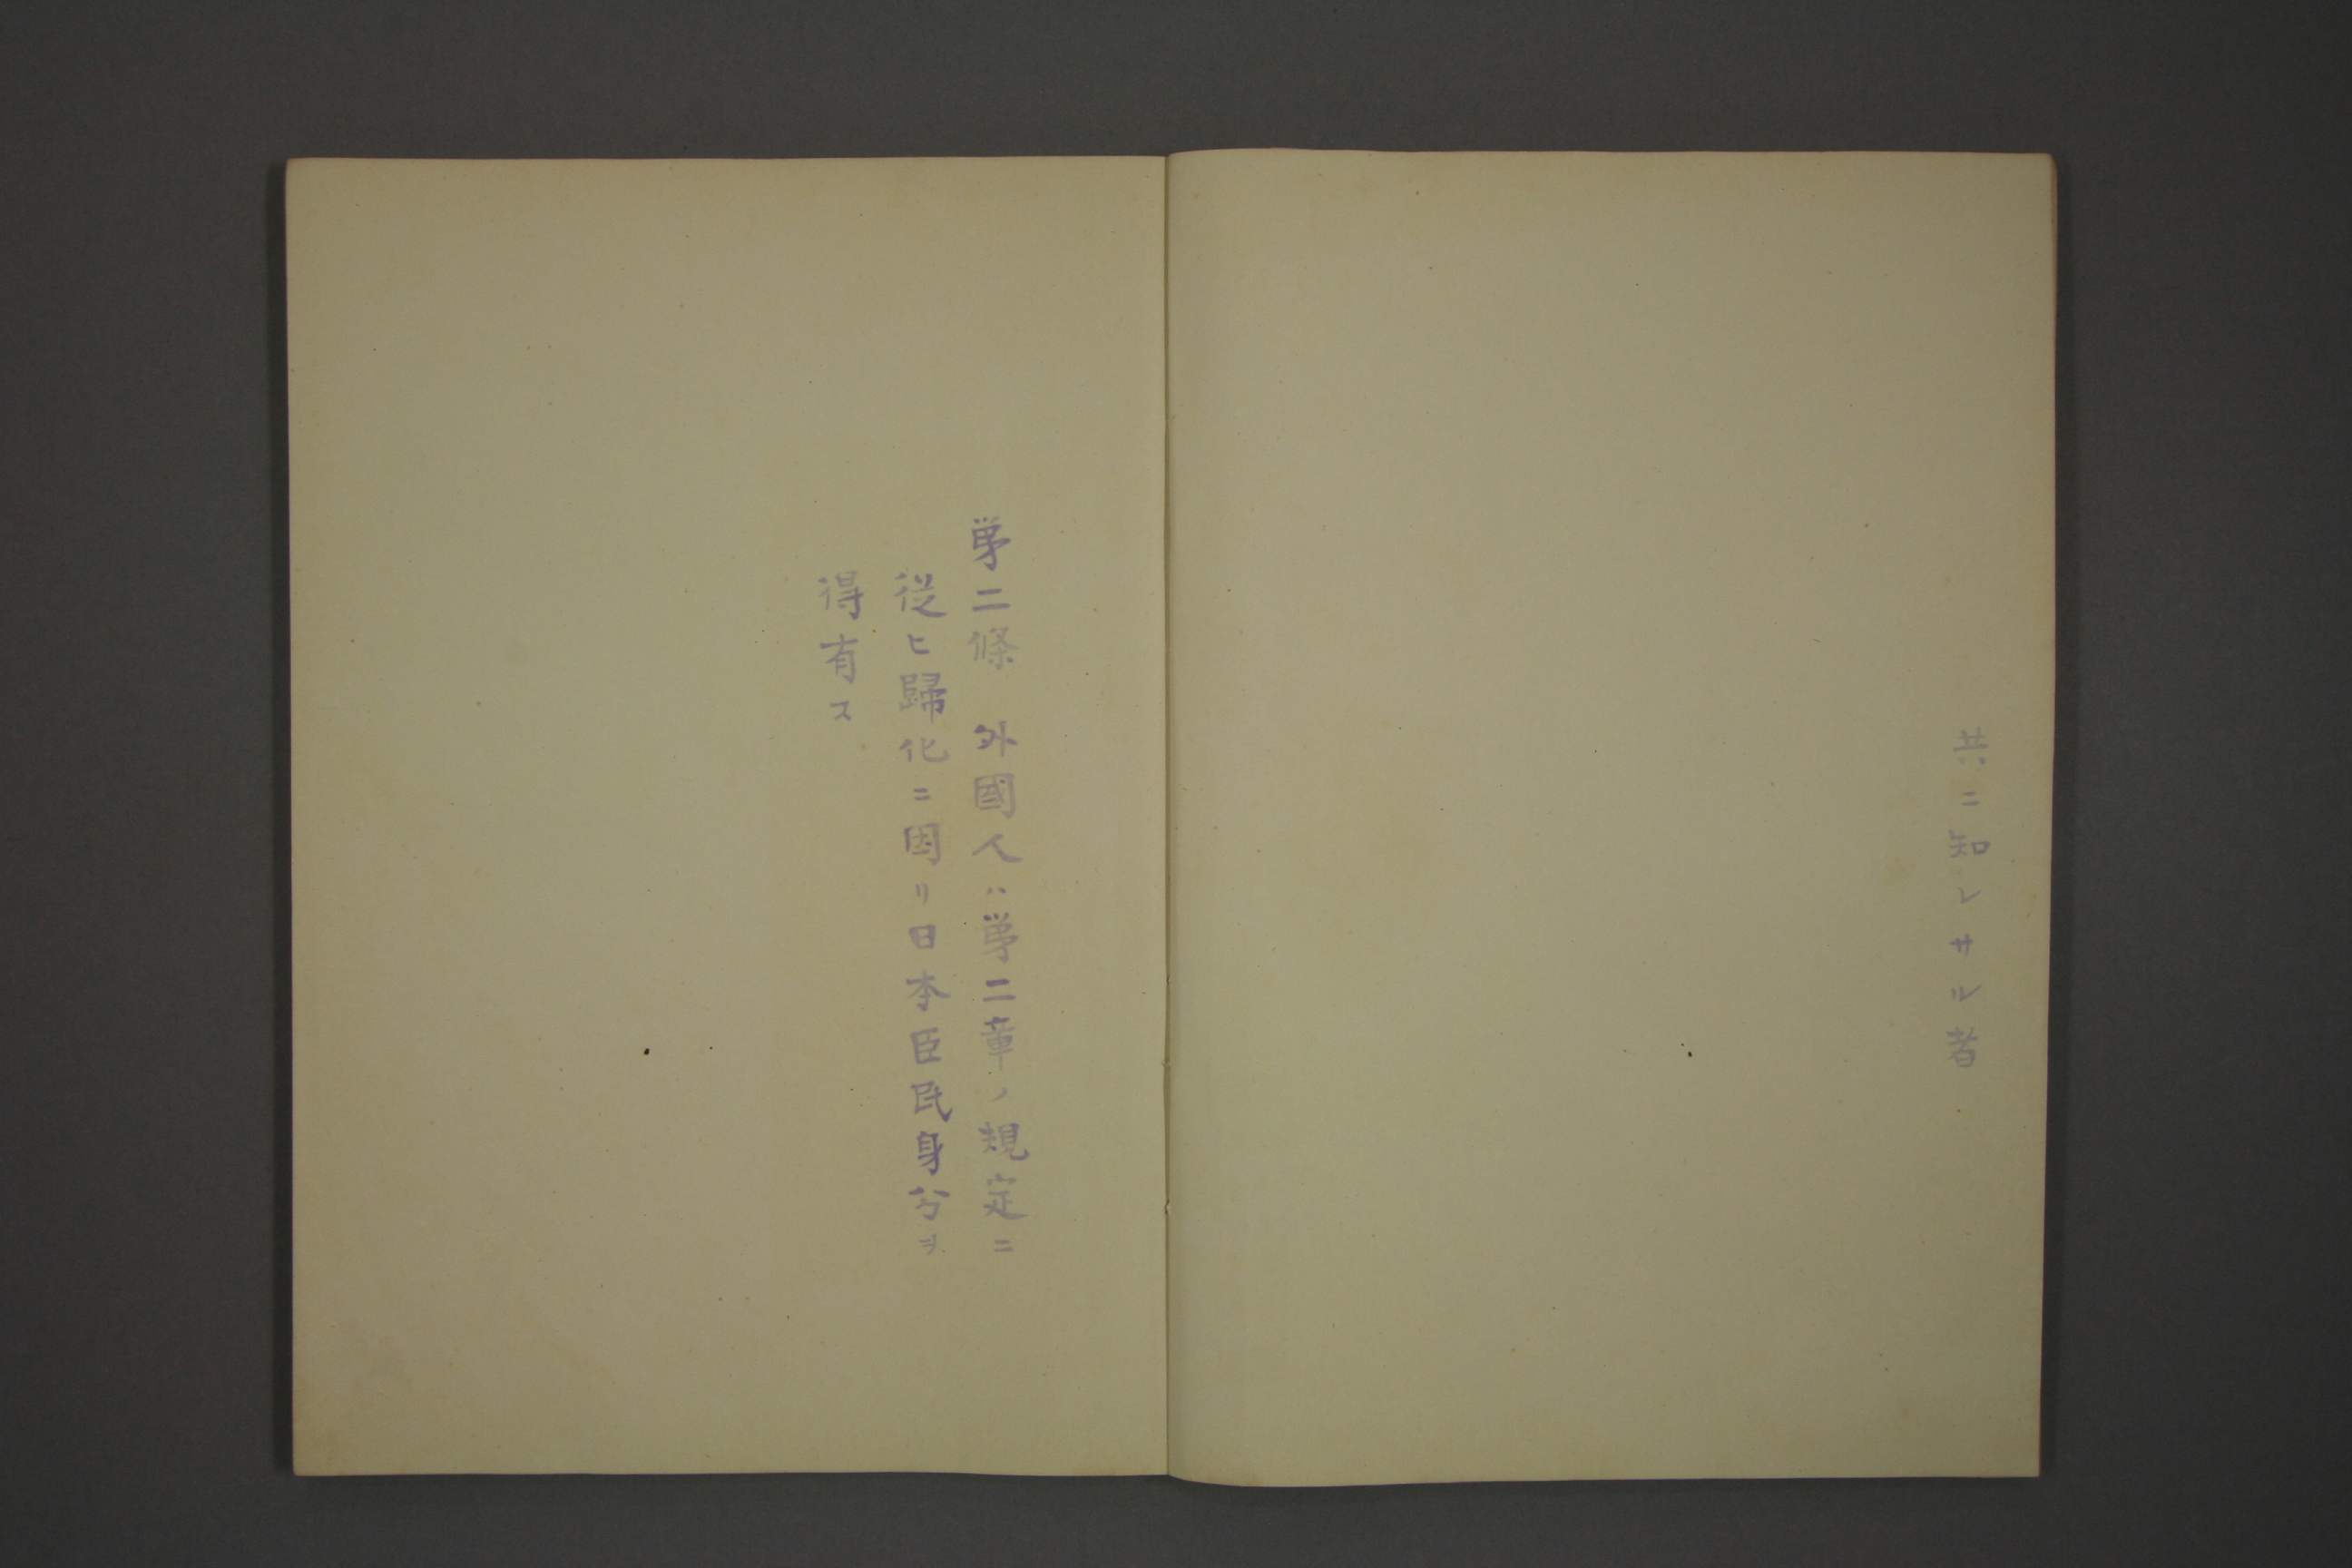 共ニ知レサル者
第二條　外國人ハ第二章ノ規定ニ
從ヒ歸化ニ因リ日本臣民身分ヲ
得有ス